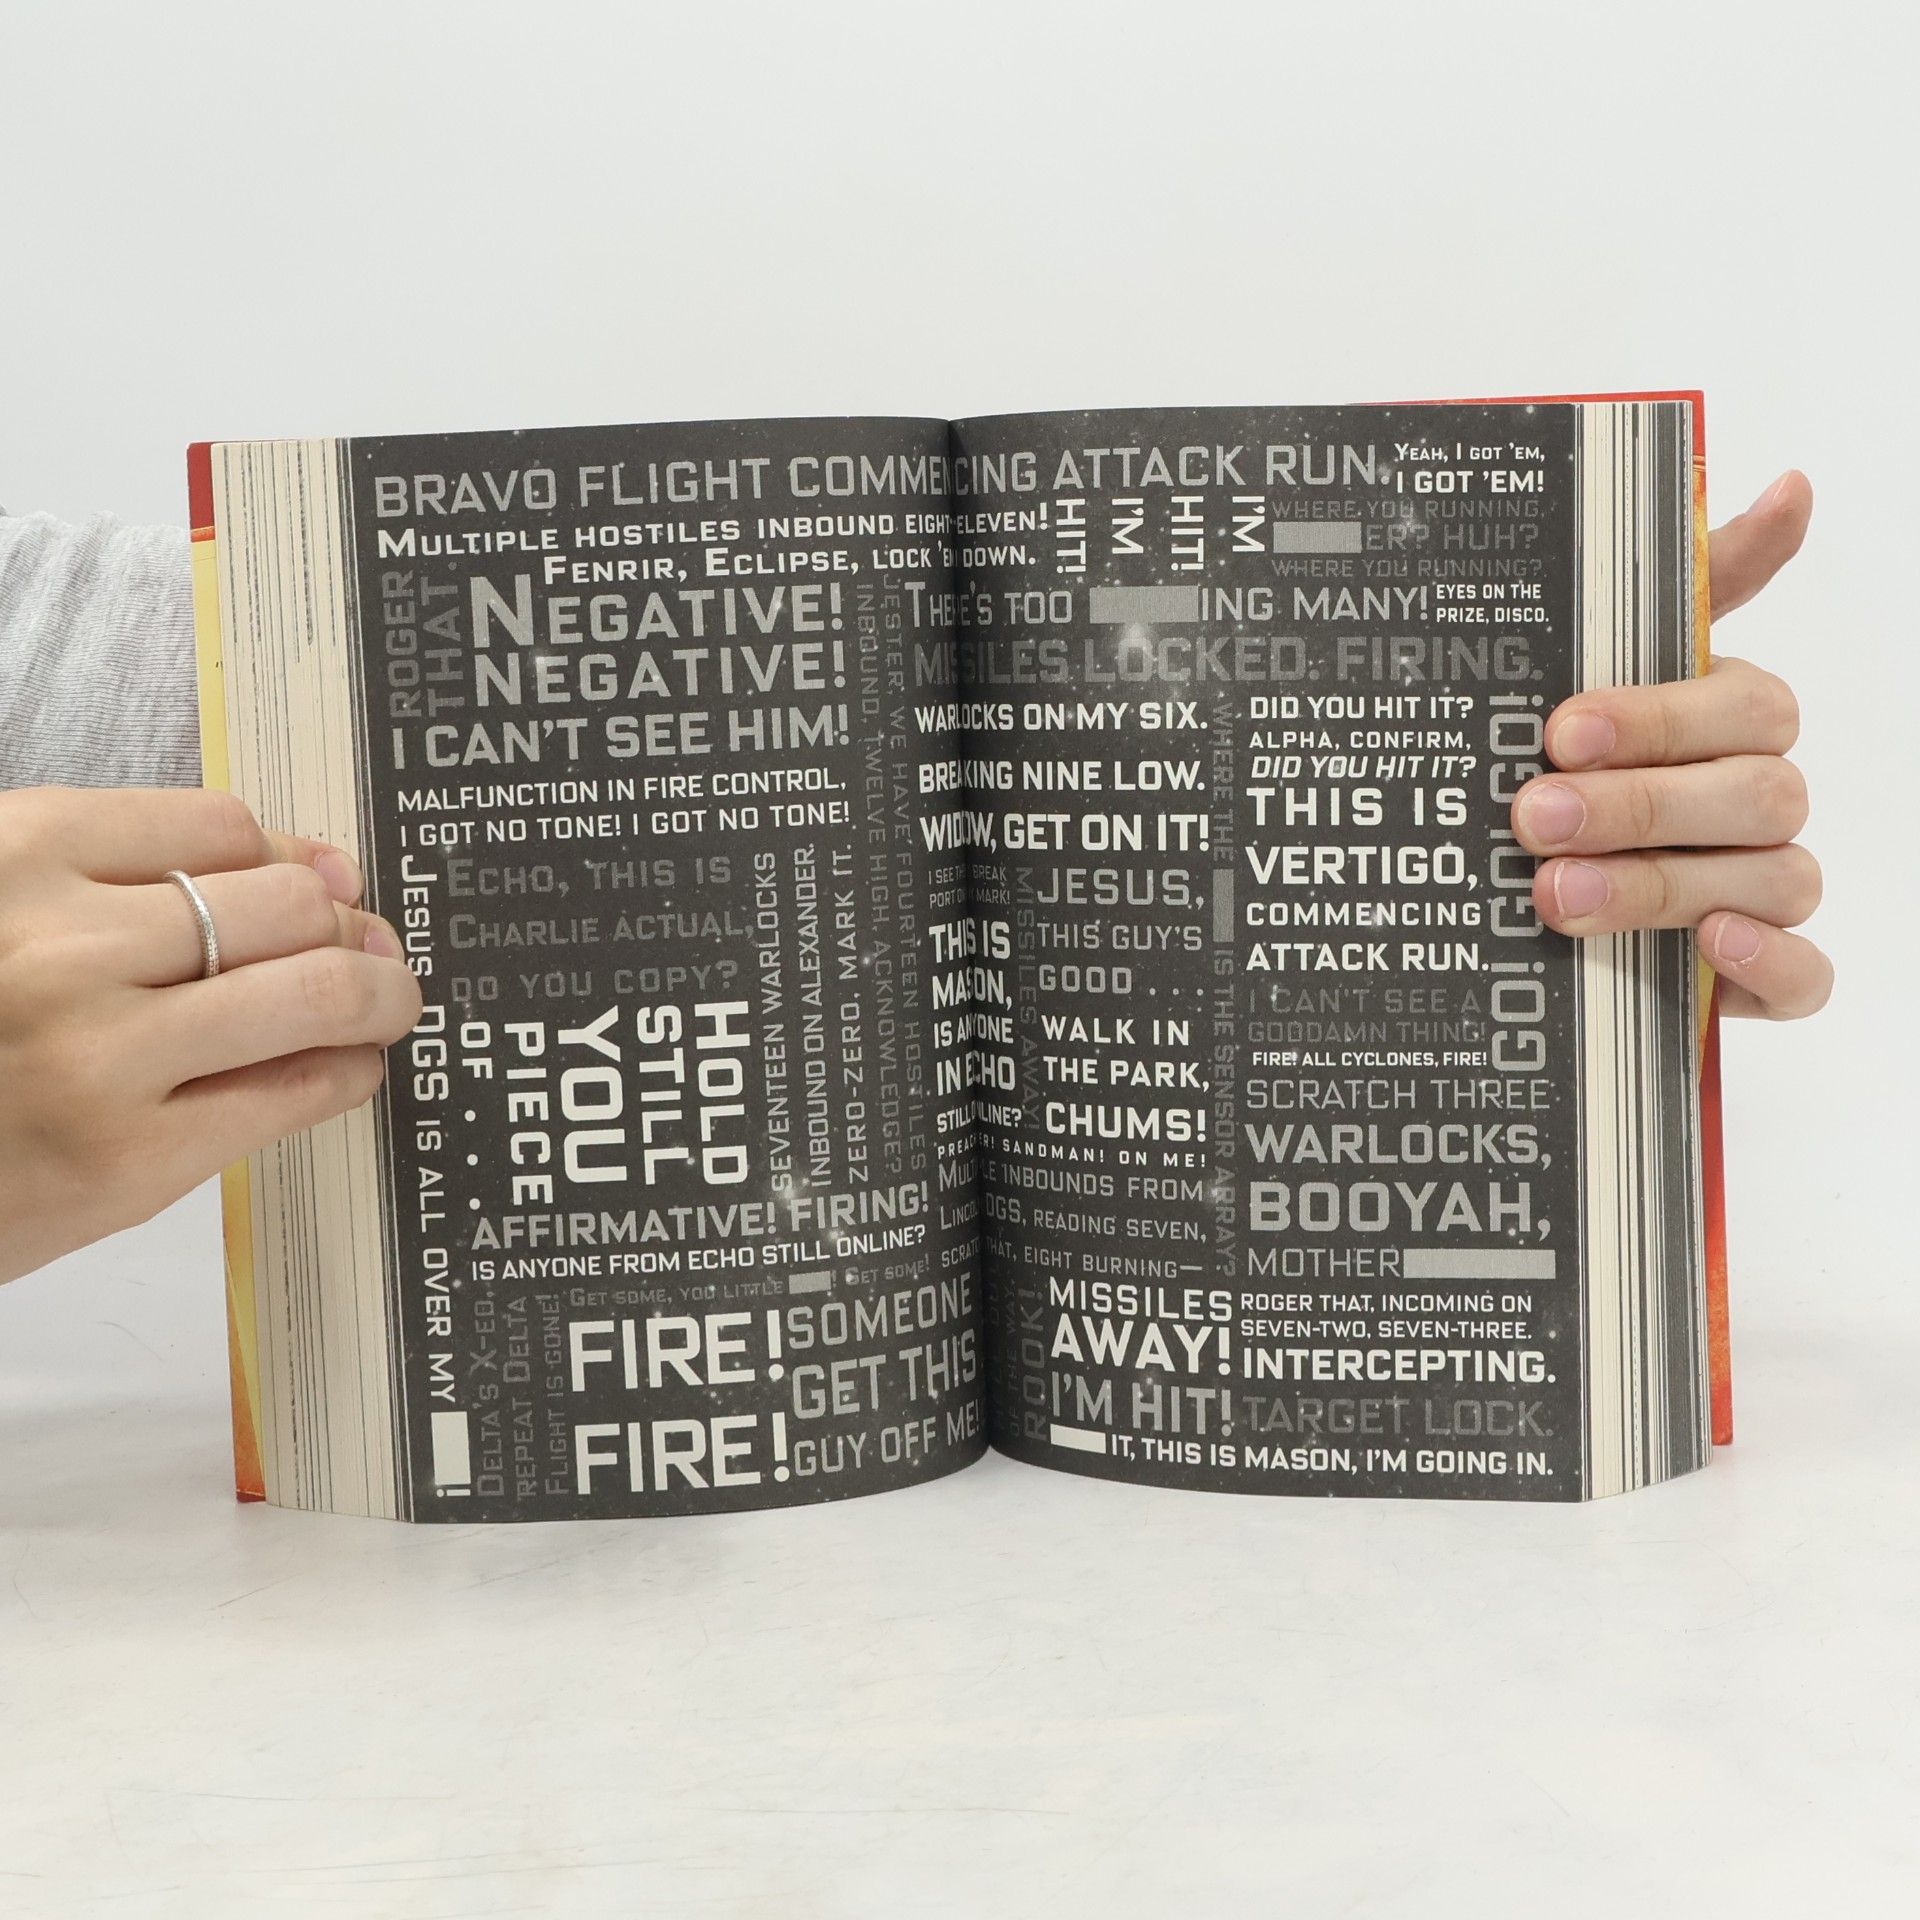 BRAVO FLIGHT COMMENCING ATTACK RUN.
YEAH, I GOT 'EM,
I GOT 'EM!
MULTIPLE HOSTILES INBOUND EIGHT-ELEVEN!
FENRIR, ECLIPSE, LOCK 'EM DOWN.
I'M
HIT!
I'M
HIT!
WHERE YOU RUNNING,
ER? HUH?
WHERE YOU RUNNING?
ROGER
THAT.
NEGATIVE!
NEGATIVE!
I CAN'T SEE HIM!
THERE'S TOO ING MANY!
EYES ON THE
PRIZE, DISCO.
MISSILES LOCKED. FIRING.
MALFUNCTION IN FIRE CONTROL,
I GOT NO TONE! I GOT NO TONE!
JESUS, DGS IS ALL OVER MY !
ECHO, THIS IS
CHARLIE ACTUAL,
DO YOU COPY?
HOLD
STILL
YOU
PIECE
OF . . . .
SEVENTEEN WARLOCKS
INBOUND ON ALEXANDER.
ZERO-ZERO, MARK IT.
JESTER, WE HAVE FOURTEEN HOSTILES
INBOUND, TWELVE HIGH, ACKNOWLEDGE?
AFFIRMATIVE! FIRING!
IS ANYONE FROM ECHO STILL ONLINE?
GET SOME, YOU LITTLE ! GET SOME!
DELTA'S X-ED,
REPEAT DELTA
FLIGHT IS GONE!
FIRE!
FIRE!
SOMEONE
GET THIS
GUY OFF ME!
WARLOCKS ON MY SIX.
BREAKING NINE LOW.
WIDOW, GET ON IT!
I SEE THE BREAK
PORT ON MY MARK!
THIS IS
MASON,
IS ANYONE
IN ECHO
STILL ONLINE?
MISSILES AWAY!
JESUS,
THIS GUY'S
GOOD . . .
WALK IN
THE PARK,
CHUMS!
PREACHER! SANDMAN! ON ME!
MULTIPLE INBOUNDS FROM
LINCOLN DGS, READING SEVEN,
SCRATCH THAT, EIGHT BURNING—
OF THE WAY,
ROOK!
MISSILES
AWAY!
I'M HIT!
WHERE THE IS THE SENSOR ARRAY?
DID YOU HIT IT?
ALPHA, CONFIRM,
DID YOU HIT IT?
THIS IS
VERTIGO,
COMMENCING
ATTACK RUN.
GO! GO! GO!
I CAN'T SEE A
GODDAMN THING!
FIRE! ALL CYCLONES, FIRE!
SCRATCH THREE
WARLOCKS,
BOOYAH,
MOTHER
ROGER THAT, INCOMING ON
SEVEN-TWO, SEVEN-THREE.
INTERCEPTING.
TARGET LOCK.
IT, THIS IS MASON, I'M GOING IN.